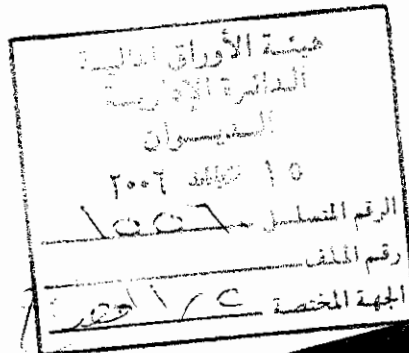 هيئة الأوراق المالية
الدائرة الإدارية
الديسوان
١٥ ٢٠٠٦
الرقم المتسلسل
رقم الملف
الجهة المختصة